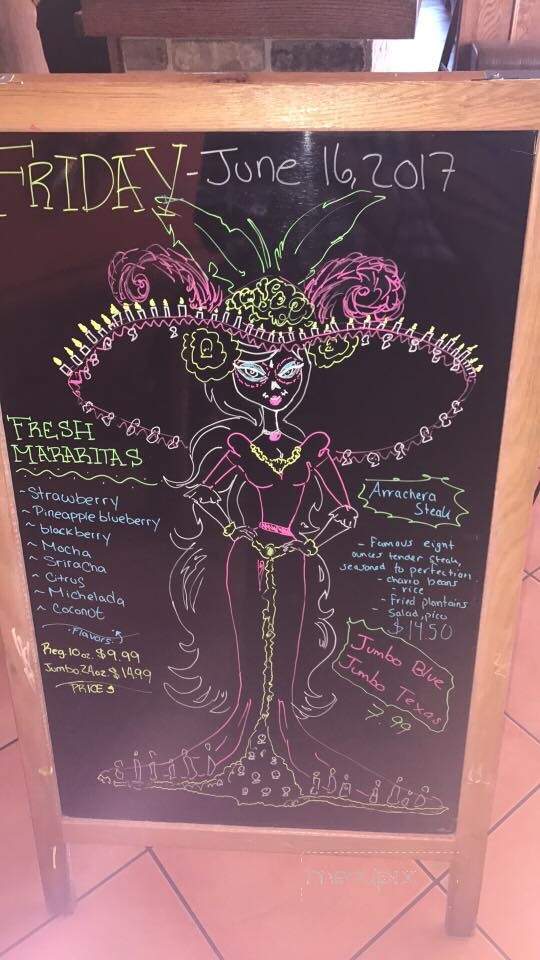 FRIDAY - June 16, 2017
FRESH
MARARITAS
- Strawberry
~ Pineapple blueberry
~ blackberry
~ Mocha
~ Sriracha
~ Citrus
~ Michelada
~ Coconut
Flavors
Reg. 10oz. $9.99
Jumbo 24oz $14.99
PRICES
Arrachera
Steak
- Famous eight
ounces tender steak,
seasoned to perfection.
- charo beans
- rice
- Fried plantains
- Salad, pico
$14.50
Jumbo Blue
Jumbo Texas
7.99
menupix